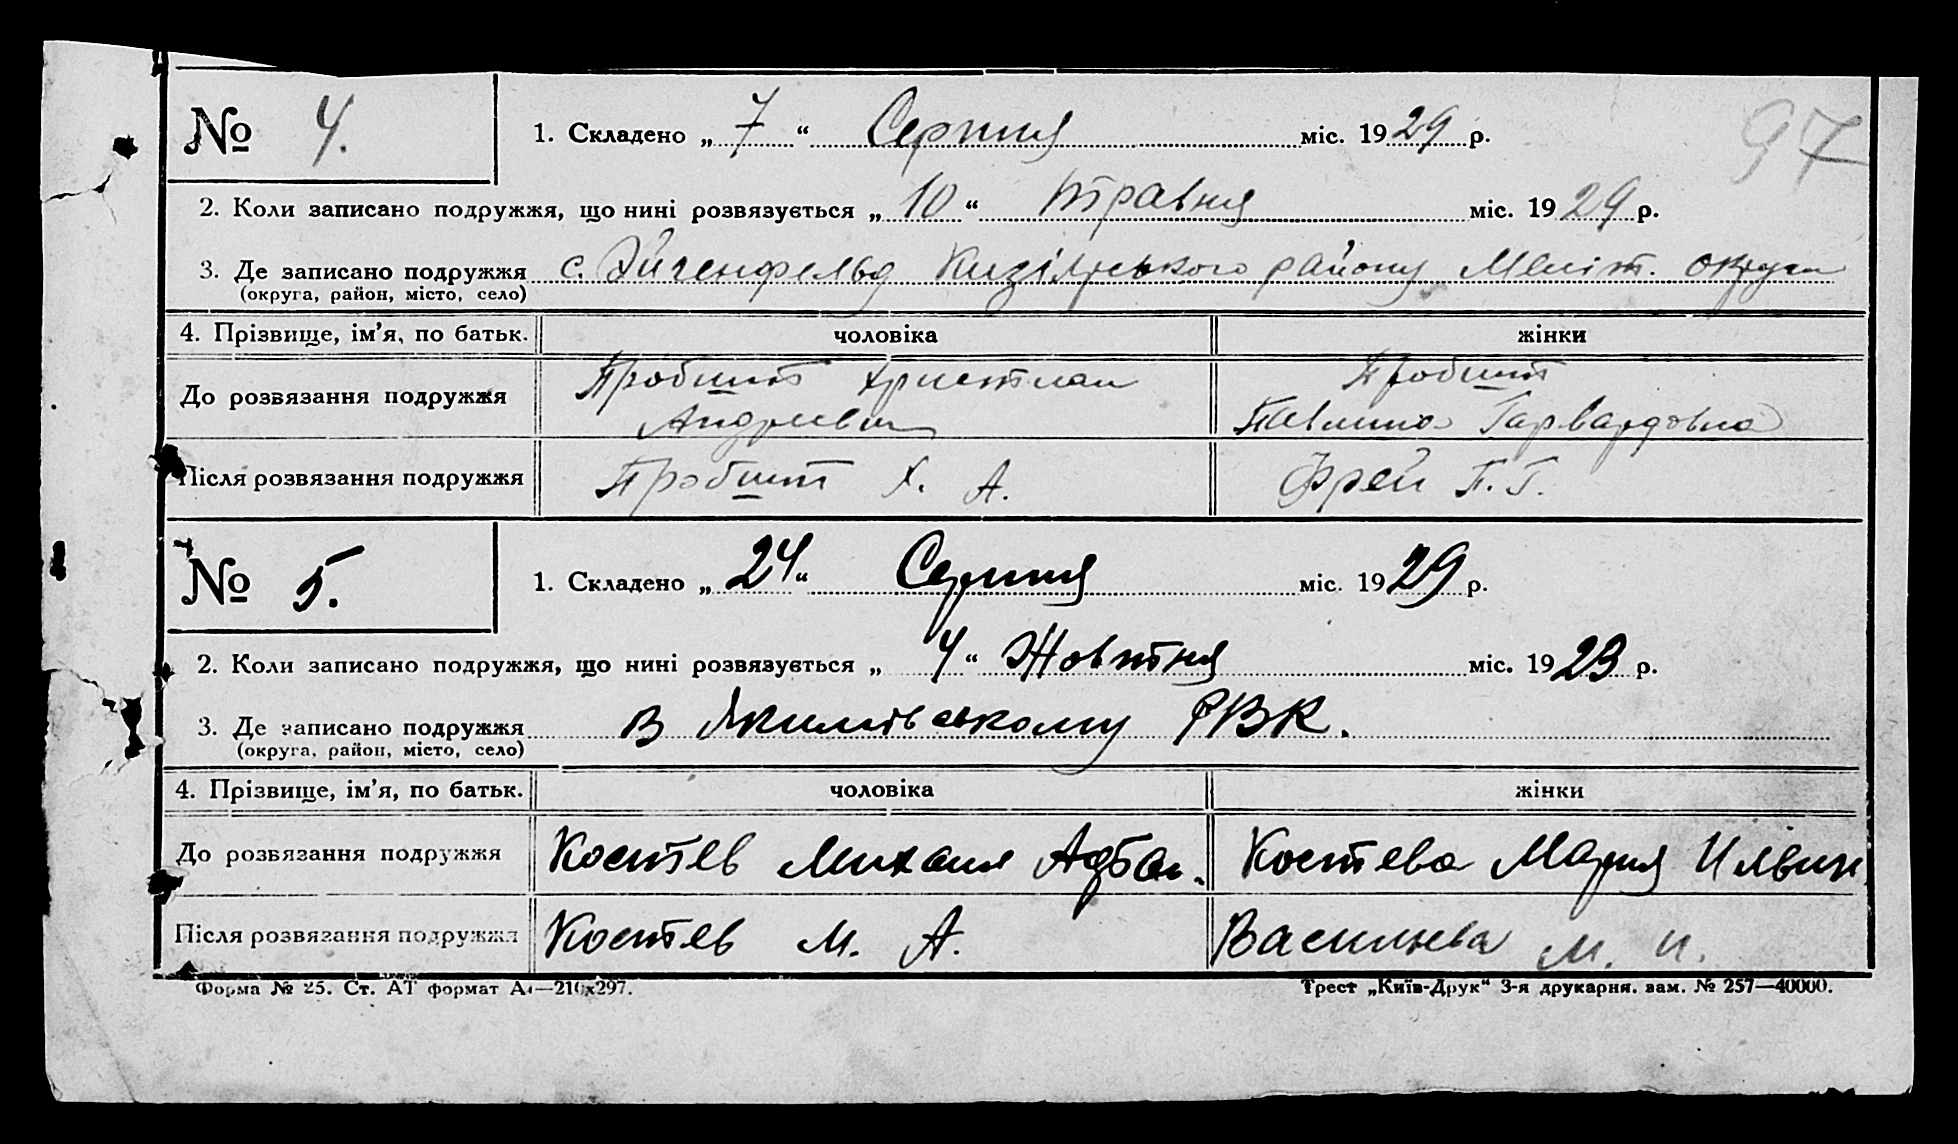 97
№ 4. 1. Складено „ 7 “ Серпня міс. 1929 р.
2. Коли записано подружжя, що нині розвязується „ 10 “ травня міс. 1929 р.
3. Де записано подружжя с. Эйгенфельд району Меліт. округи
(округа, район, місто, село)
4. Прізвище, ім’я, по батьк. чоловіка жінки
До розвязання подружжя Пробшт Християн Пробшт
Андреевич Павлина Гарвардовна
Після розвязання подружжя Пробшт Х. А. Фрей П. Г.
№ 5. 1. Складено „ 24 “ Серпня міс. 1929 р.
2. Коли записано подружжя, що нині розвязується „ 4 “ Жовтня міс. 1923 р.
3. Де записано подружжя в Якимівському РВК.
(округа, район, місто, село)
4. Прізвище, ім’я, по батьк. чоловіка жінки
До розвязання подружжя Костев Михаил Костева Мария
Після розвязання подружжя Костев М. А. М. И.
Форма № 25. Ст. АТ формат А4—210х297. Трест „Київ-Друк“ 3-я друкарня. зам. № 257—40000.